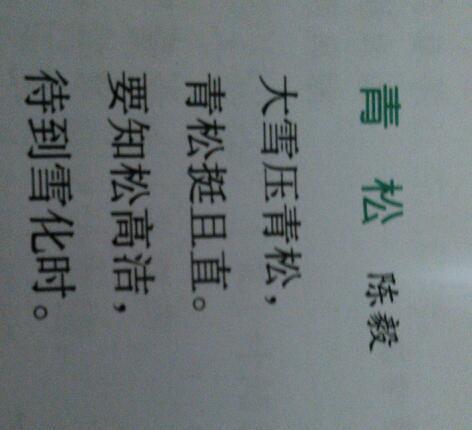 青 松
陈毅
大雪压青松，
青松挺且直。
要知松高洁，
待到雪化时。